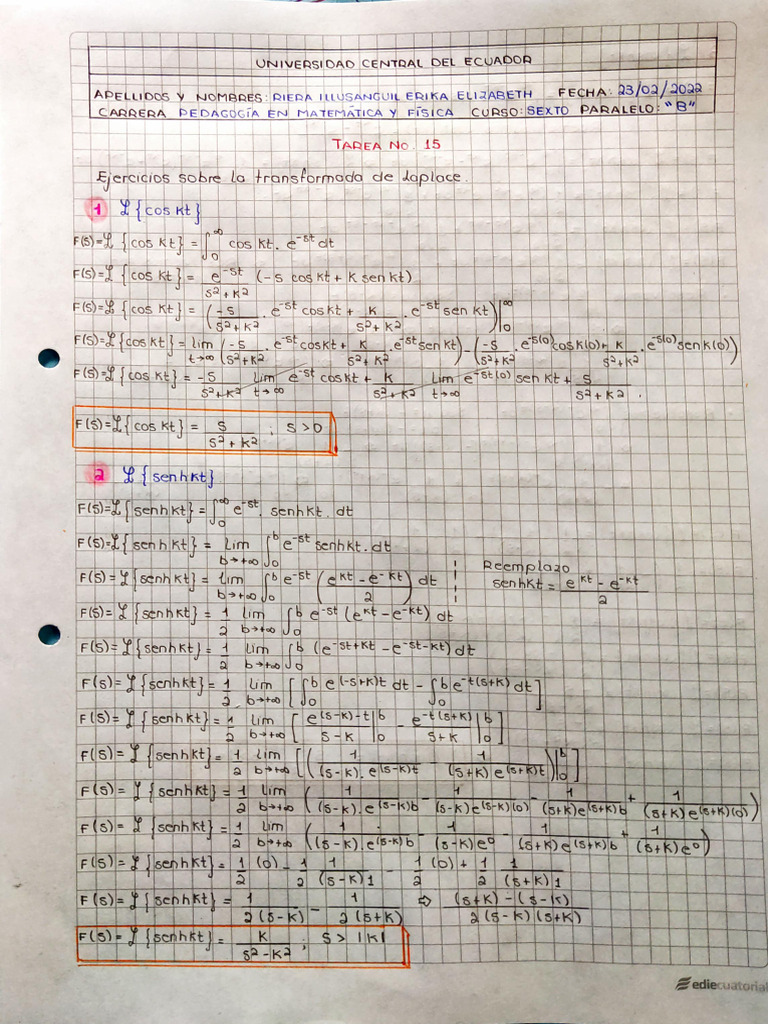 UNIVERSIDAD CENTRAL DEL ECUADOR
APELLIDOS Y NOMBRES: RIERA ILLUSANGUIL ERIKA ELIZABETH FECHA: 23/02/2022
CARRERA PEDAGOGÍA EN MATEMÁTICA Y FÍSICA CURSO: SEXTO PARALELO: "B"
TAREA No. 15
Ejercicios sobre la transformada de laplace.
1 ℒ{cos kt}
F(s)=ℒ{cos kt} = ∫₀^∞ cos kt. e^(-st) dt
F(s)=ℒ{cos kt} = e^(-st)/(s²+k²) (-s cos kt + k sen kt)
F(s)=ℒ{cos kt} = (-s/(s²+k²) . e^(-st) cos kt + k/(s²+k²) . e^(-st) sen kt)|₀^∞
F(s)=ℒ{cos kt} = lim t→∞ (-s/(s²+k²) . e^(-st) cos kt + k/(s²+k²) . e^(-st) sen kt) - (-s/(s²+k²) . e^(-s(0)) cos k(0) + k/(s²+k²) . e^(-s(0)) sen k(0))
F(s)=ℒ{cos kt} = -s/(s²+k²) lim t→∞ e^(-st) cos kt + k/(s²+k²) lim t→∞ e^(-st(0)) sen kt + s/(s²+k²) .
F(s)=ℒ{cos kt} = s/(s²+k²) ; s>0
2 ℒ{senhkt}
F(s)=ℒ{senhkt} = ∫₀^∞ e^(-st). senhkt. dt
F(s)=ℒ{senhkt} = lim b→+∞ ∫₀^b e^(-st) senhkt. dt
F(s)=ℒ{senhkt} = lim b→+∞ ∫₀^b e^(-st) ((e^(kt) - e^(-kt))/2) dt
Reemplazo
senhkt = (e^(kt) - e^(-kt))/2
F(s)=ℒ{senhkt} = 1/2 lim b→+∞ ∫₀^b e^(-st) (e^(kt) - e^(-kt)) dt
F(s)=ℒ{senhkt} = 1/2 lim b→+∞ ∫₀^b (e^(-st+kt) - e^(-st-kt)) dt
F(s)=ℒ{senhkt} = 1/2 lim b→+∞ [∫₀^b e^((-s+k)t) dt - ∫₀^b e^(-t(s+k)) dt]
F(s)=ℒ{senhkt} = 1/2 lim b→+∞ [e^((s-k)-t)/(s-k)|₀^b - e^(-t(s+k))/(s+k)|₀^b]
F(s)=ℒ{senhkt} = 1/2 lim b→+∞ [(1/((s-k).e^((s-k)t)) - 1/((s+k)e^((s+k)t)))|₀^b]
F(s)=ℒ{senhkt} = 1/2 lim b→+∞ (1/((s-k).e^((s-k)b)) - 1/((s-k)e^((s-k)(0))) - 1/((s+k)e^((s+k)b)) + 1/((s+k)e^((s+k)(0))))
F(s)=ℒ{senhkt} = 1/2 lim b→+∞ (1/((s-k).e^((s-k)b)) - 1/((s-k)e⁰) - 1/((s+k)e^((s+k)b)) + 1/((s+k)e⁰))
F(s)=ℒ{senhkt} = 1/2 (0) - 1/2 1/((s-k)1) - 1/2 (0) + 1/2 1/((s+k)1)
F(s)=ℒ{senhkt} = 1/(2(s-k)) - 1/(2(s+k)) ⇒ ((s+k)-(s-k))/(2(s-k)(s+k))
F(s)=ℒ{senhkt} = k/(s²-k²) ; s > |k|
ediecuatorial